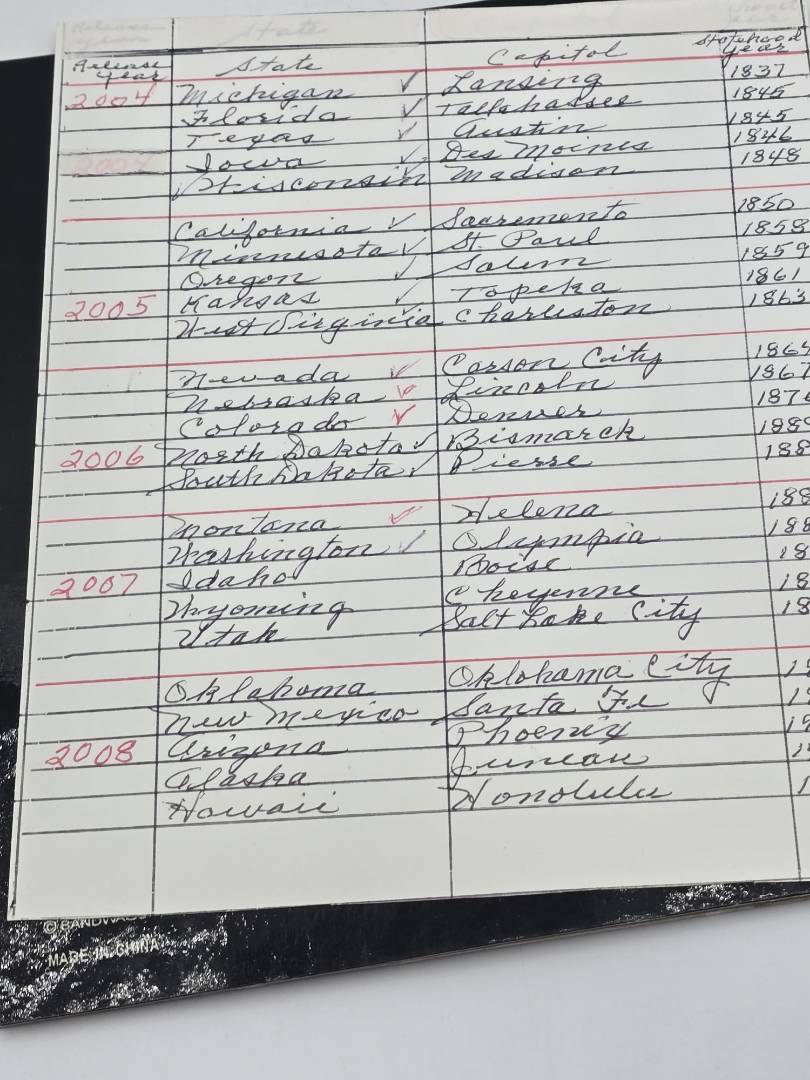 Release Year State Capitol Statehood Year
2004 Michigan ✓ Lansing 1837
Florida ✓ Tallahassee 1845
Texas ✓ Austin 1845
2004 Iowa ✓ Des Moines 1846
✓ Wisconsin Madison 1848
California ✓ Sacremento 1850
Minnesota ✓ St. Paul 1858
Oregon ✓ Salem 1859
2005 Kansas ✓ Topeka 1861
West Virginia ✓ Charleston 1863
Nevada ✓ Carson City 1864
Nebraska ✓ Lincoln 1867
Colorado ✓ Denver 1876
2006 North Dakota ✓ Bismarck 1889
South Dakota ✓ Pierre 188
Montana ✓ Helena 188
Washington ✓ Olympia 188
2007 Idaho Boise 18
Wyoming Cheyenne 18
Utah Salt Lake City 18
Oklahoma Oklohama City 19
New Mexico Santa Fe 19
2008 Arizona Phoenix 19
Alaska Juneau 1
Hawaii Honolulu 1
MADE IN CHINA